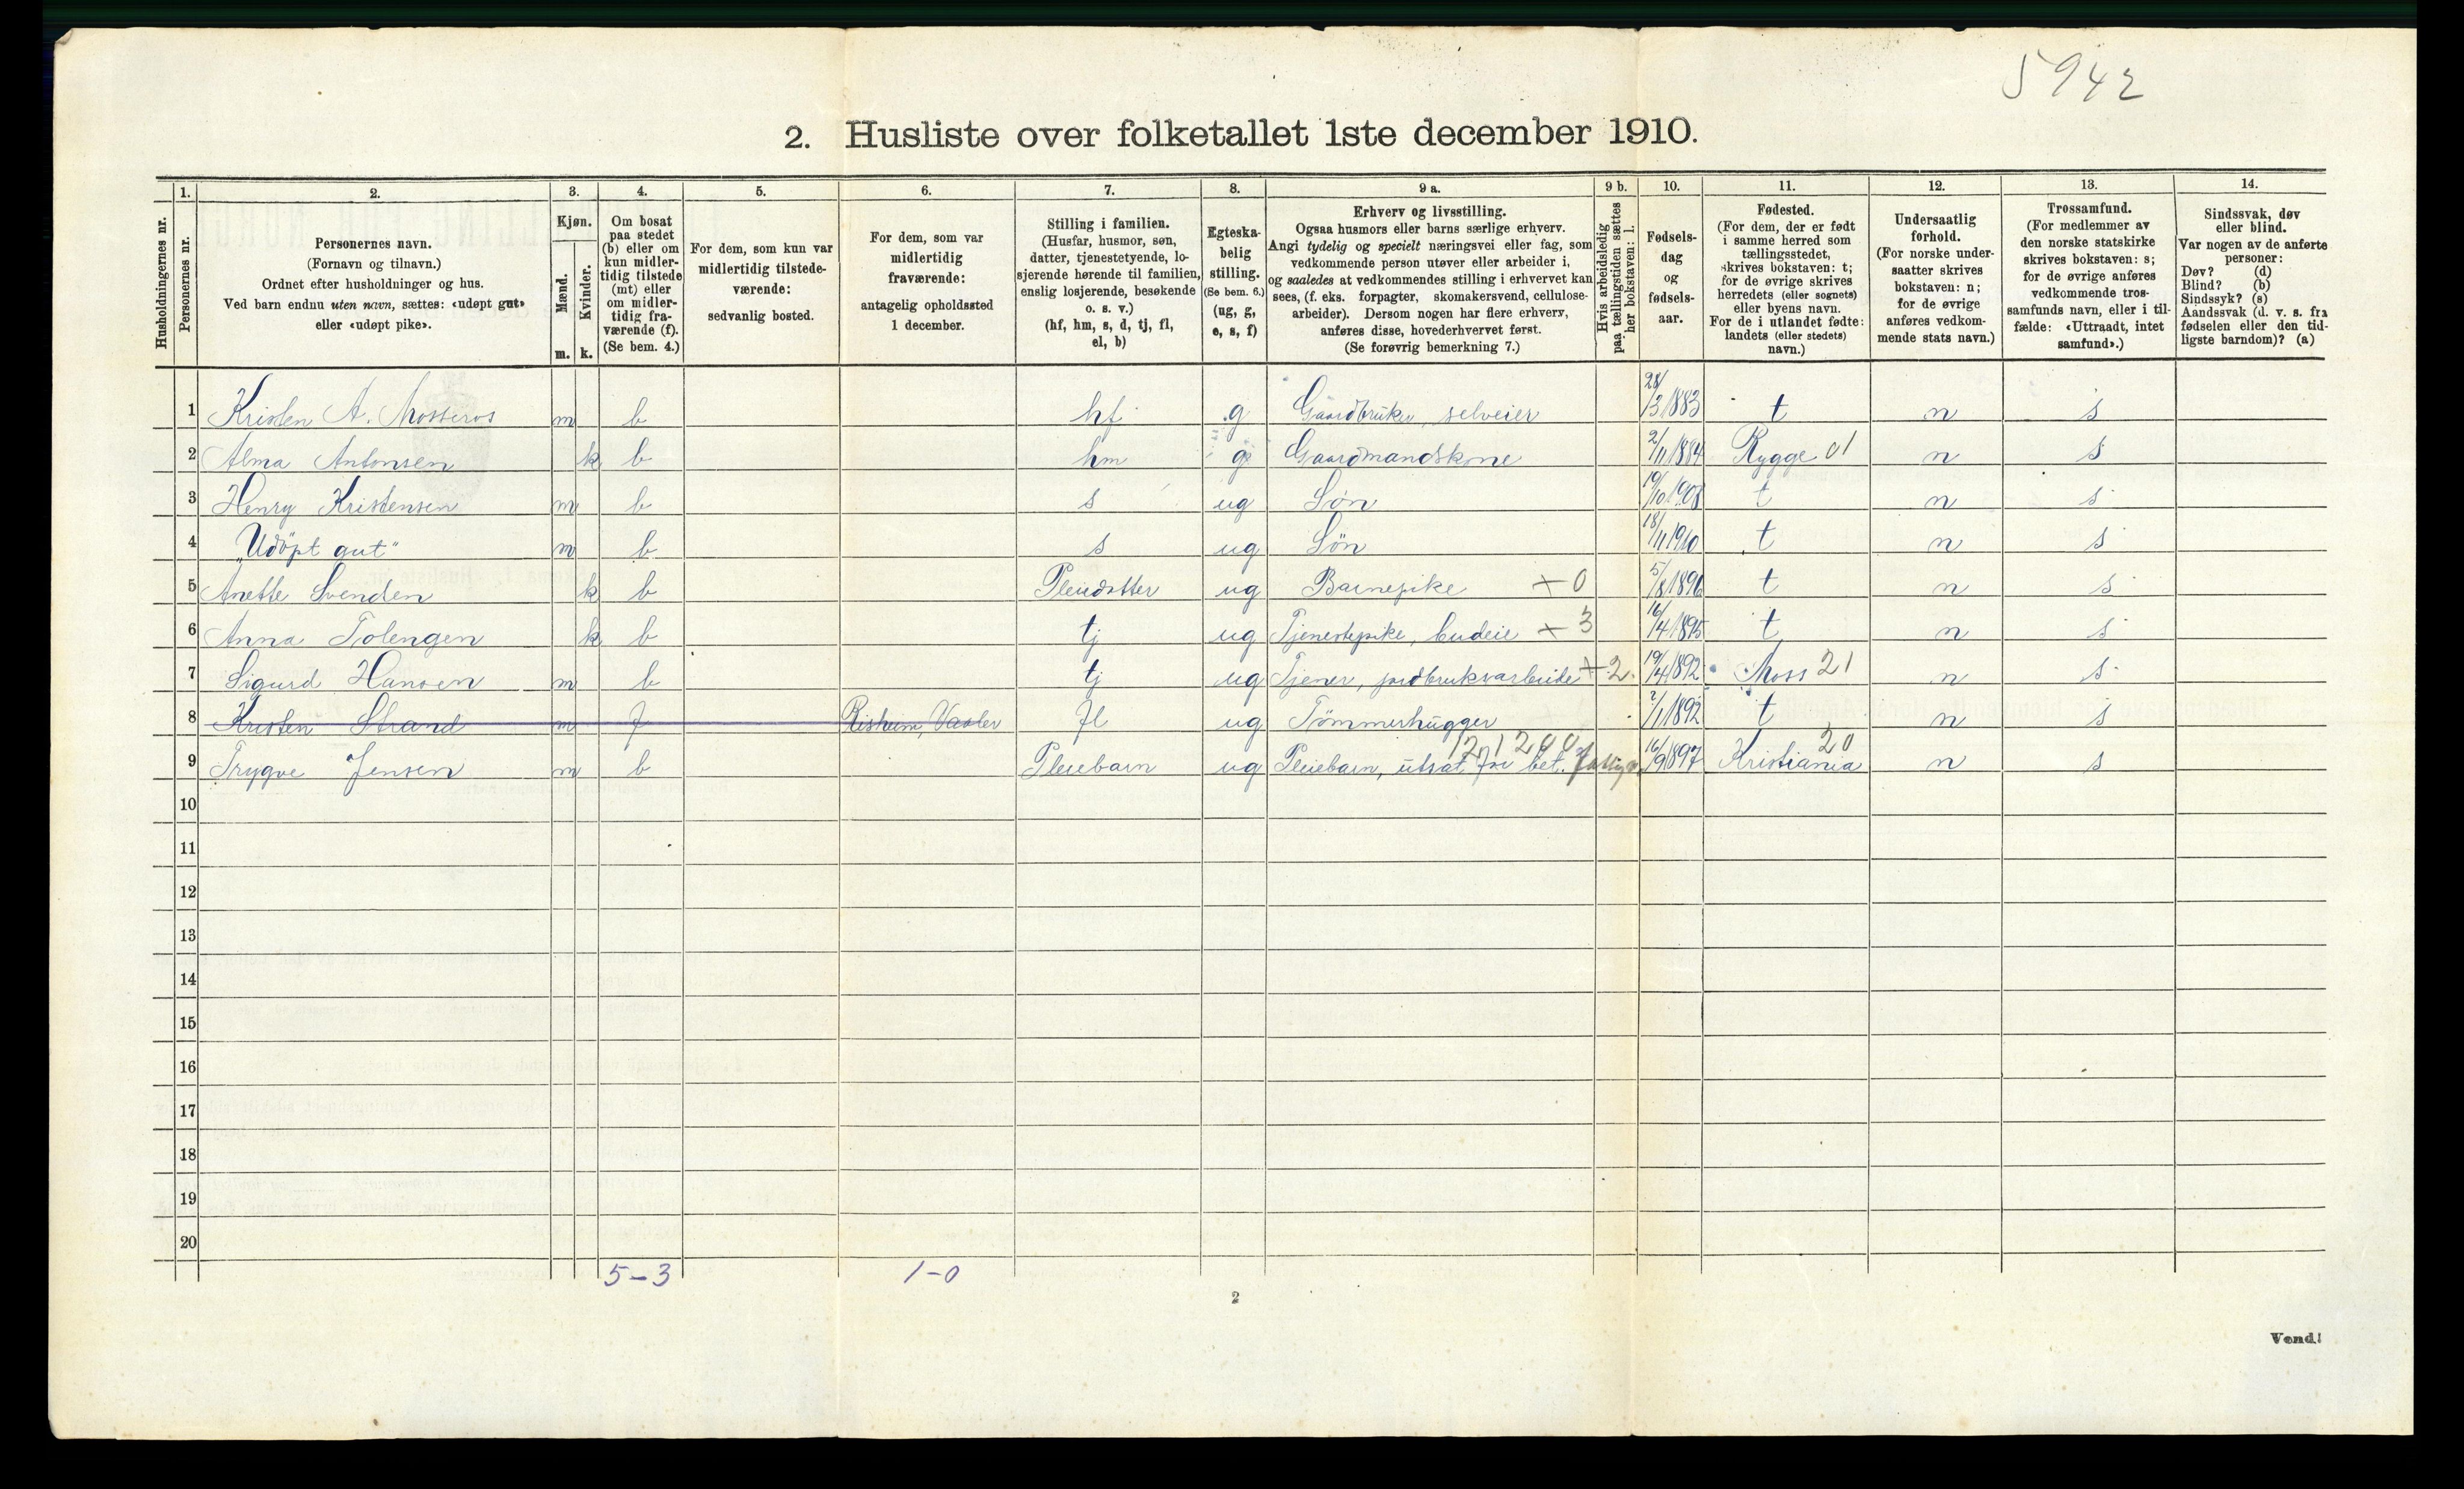 5942
2. Husliste over folketallet 1ste december 1910.
Husholdningernes nr.
1. Personernes nr.
2. Personernes navn. (Fornavn og tilnavn.) Ordnet efter husholdninger og hus. Ved barn endnu uten navn, sættes: «udøpt gut» eller «udøpt pike».
3. Kjøn. Mænd. m. Kvinder. k.
4. Om bosat paa stedet (b) eller om kun midler-tidig tilstede (mt) eller om midler-tidig fra-værende (f). (Se bem. 4.)
5. For dem, som kun var midlertidig tilstede-værende: sedvanlig bosted.
6. For dem, som var midlertidig fraværende: antagelig opholdssted 1 december.
7. Stilling i familien. (Husfar, husmor, søn, datter, tjenestetyende, lo-sjerende hørende til familien, enslig losjerende, besøkende o. s. v.) (hf, hm, s, d, tj, fl, el, b)
8. Egteska-belig stilling. (Se bem. 6.) (ug, g, e, s, f)
9 a. Erhverv og livsstilling. Ogsaa husmors eller barns særlige erhverv. Angi tydelig og specielt næringsvei eller fag, som vedkommende person utøver eller arbeider i, og saaledes at vedkommendes stilling i erhvervet kan sees, (f. eks. forpagter, skomakersvend, cellulose-arbeider). Dersom nogen har flere erhverv, anføres disse, hovederhvervet først. (Se forøvrig bemerkning 7.)
9 b. Hvis arbeidsledig paa tællingstiden sættes her bokstaven: l.
10. Fødsels-dag og fødsels-aar.
11. Fødested. (For dem, der er født i samme herred som tællingsstedet, skrives bokstaven: t; for de øvrige skrives herredets (eller sognets) eller byens navn. For de i utlandet fødte: landets (eller stedets) navn.)
12. Undersaatlig forhold. (For norske under-saatter skrives bokstaven: n; for de øvrige anføres vedkom-mende stats navn.)
13. Trossamfund. (For medlemmer av den norske statskirke skrives bokstaven: s; for de øvrige anføres vedkommende tros-samfunds navn, eller i til-fælde: «Uttraadt, intet samfund».)
14. Sindssvak, døv eller blind. Var nogen av de anførte personer: Døv? (d) Blind? (b) Sindssyk? (s) Aandssvak (d. v. s. fra fødselen eller den tid-ligste barndom)? (a)
1 Kristen A. Mosseros m b hf g Gaardbruker, selveier 28/3 1883 t n s
2 Alma Antonsen k b hm g Gaardmandskone 2/11 1884 Rygge 01 n s
3 Henry Kristensen m b s ug Søn 19/10 1908 t n s
4 „Udöpt gut" m b s ug Sön 18/11 1910 t n s
5 Anette Svenden k b Pleiedatter ug Barnepike + 0 5/8 1896 t n s
6 Anna Tolengen k b tj ug Tjenestepike, budeie + 3 16/4 1895 t n s
7 Sigurd Hansen m b tj ug Tjener, jordbruksarbeide + 2 19/4 1892 Moss 21 n s
8 Kristen Strand m f Risheim, Vaaler fl ug Tömmerhugger ?/1 1892 t n s
9 Trygve Jensen m b Pleiebarn ug Pleiebarn, utsat for bet. 121200 16/9 1897 Kristiania 20 n s
10
11
12
13
14
15
16
17
18
19
20
5-3 1-0
2
Vend!